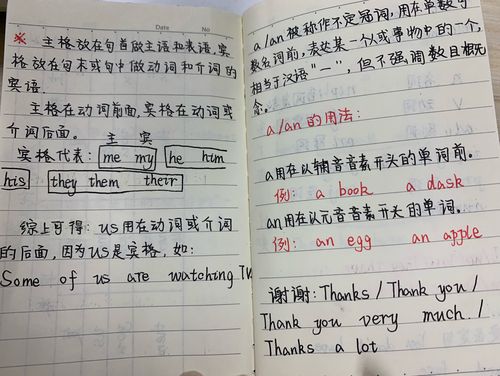 Date No
※ 主格放在句首做主语和表语,宾
格放在句末或句中做动词和介词的
宾语.
主格在动词前面,宾格在动词或
介词后面。
主 宾
宾格代表: me my he him
his they them their
综上可得: us用在动词或介词
的后面,因为us是宾格,如:
Some of us are watching TV
a/an 被称作不定冠词,用在单数可
数名词前,表达某一个人或事物中的一个,
相当于汉语"一",但不强调数目概
念.
a/an 的用法:
a用在以辅音音素开头的单词前。
例: a book a dask
an用在以元音音素开头的单词。
例: an egg an apple
谢谢: Thanks / Thank you /
Thank you very much. /
Thanks a lot